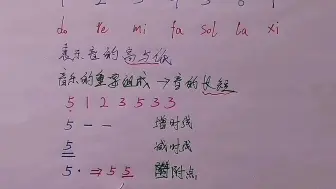 do re mi fa sol la xi
表示音的高与低
音乐的重要组成 → 音的长短
5 1 2 3 5 3 3
5 — — 增时线
5 减时线
5 · ⇒ 5 5 附点